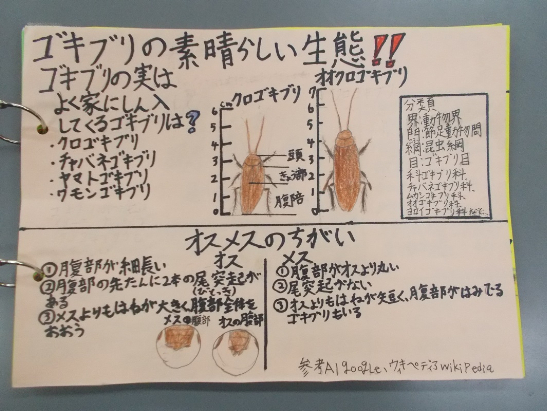 ゴキブリの素晴らしい生態!!
ゴキブリの実は
よく家にしん入
してくるゴキブリは?
・クロゴキブリ
・チャバネゴキブリ
・ヤマトゴキブリ
・ワモンゴキブリ
クロゴキブリ
6 cm
5
4
3
2
1
0
頭
腹
オオクロゴキブリ
7
6
5
4
3
2
1
0
分類
界:動物界
門:節足動物門
綱:昆虫綱
目:ゴキブリ目
科ゴキブリ科
チャバネゴキブリ科
ムカシゴキブリ科
オオゴキブリ科
ヨロイゴキブリ科など
オスメスのちがい
オス
①腹部が細長い
②腹部の先たんに2本の尾突起が
(びとっき)
ある
③メスよりもはねが大きく腹部全体を
おおう
メスの腹部
オスの腹部
メス
①腹部がオスより丸い
②尾突起がない
③オスよりもはねが短く、腹部がはみでる
ゴキブリもいる
参考AIgoogle、ウィキペディアwikipedia